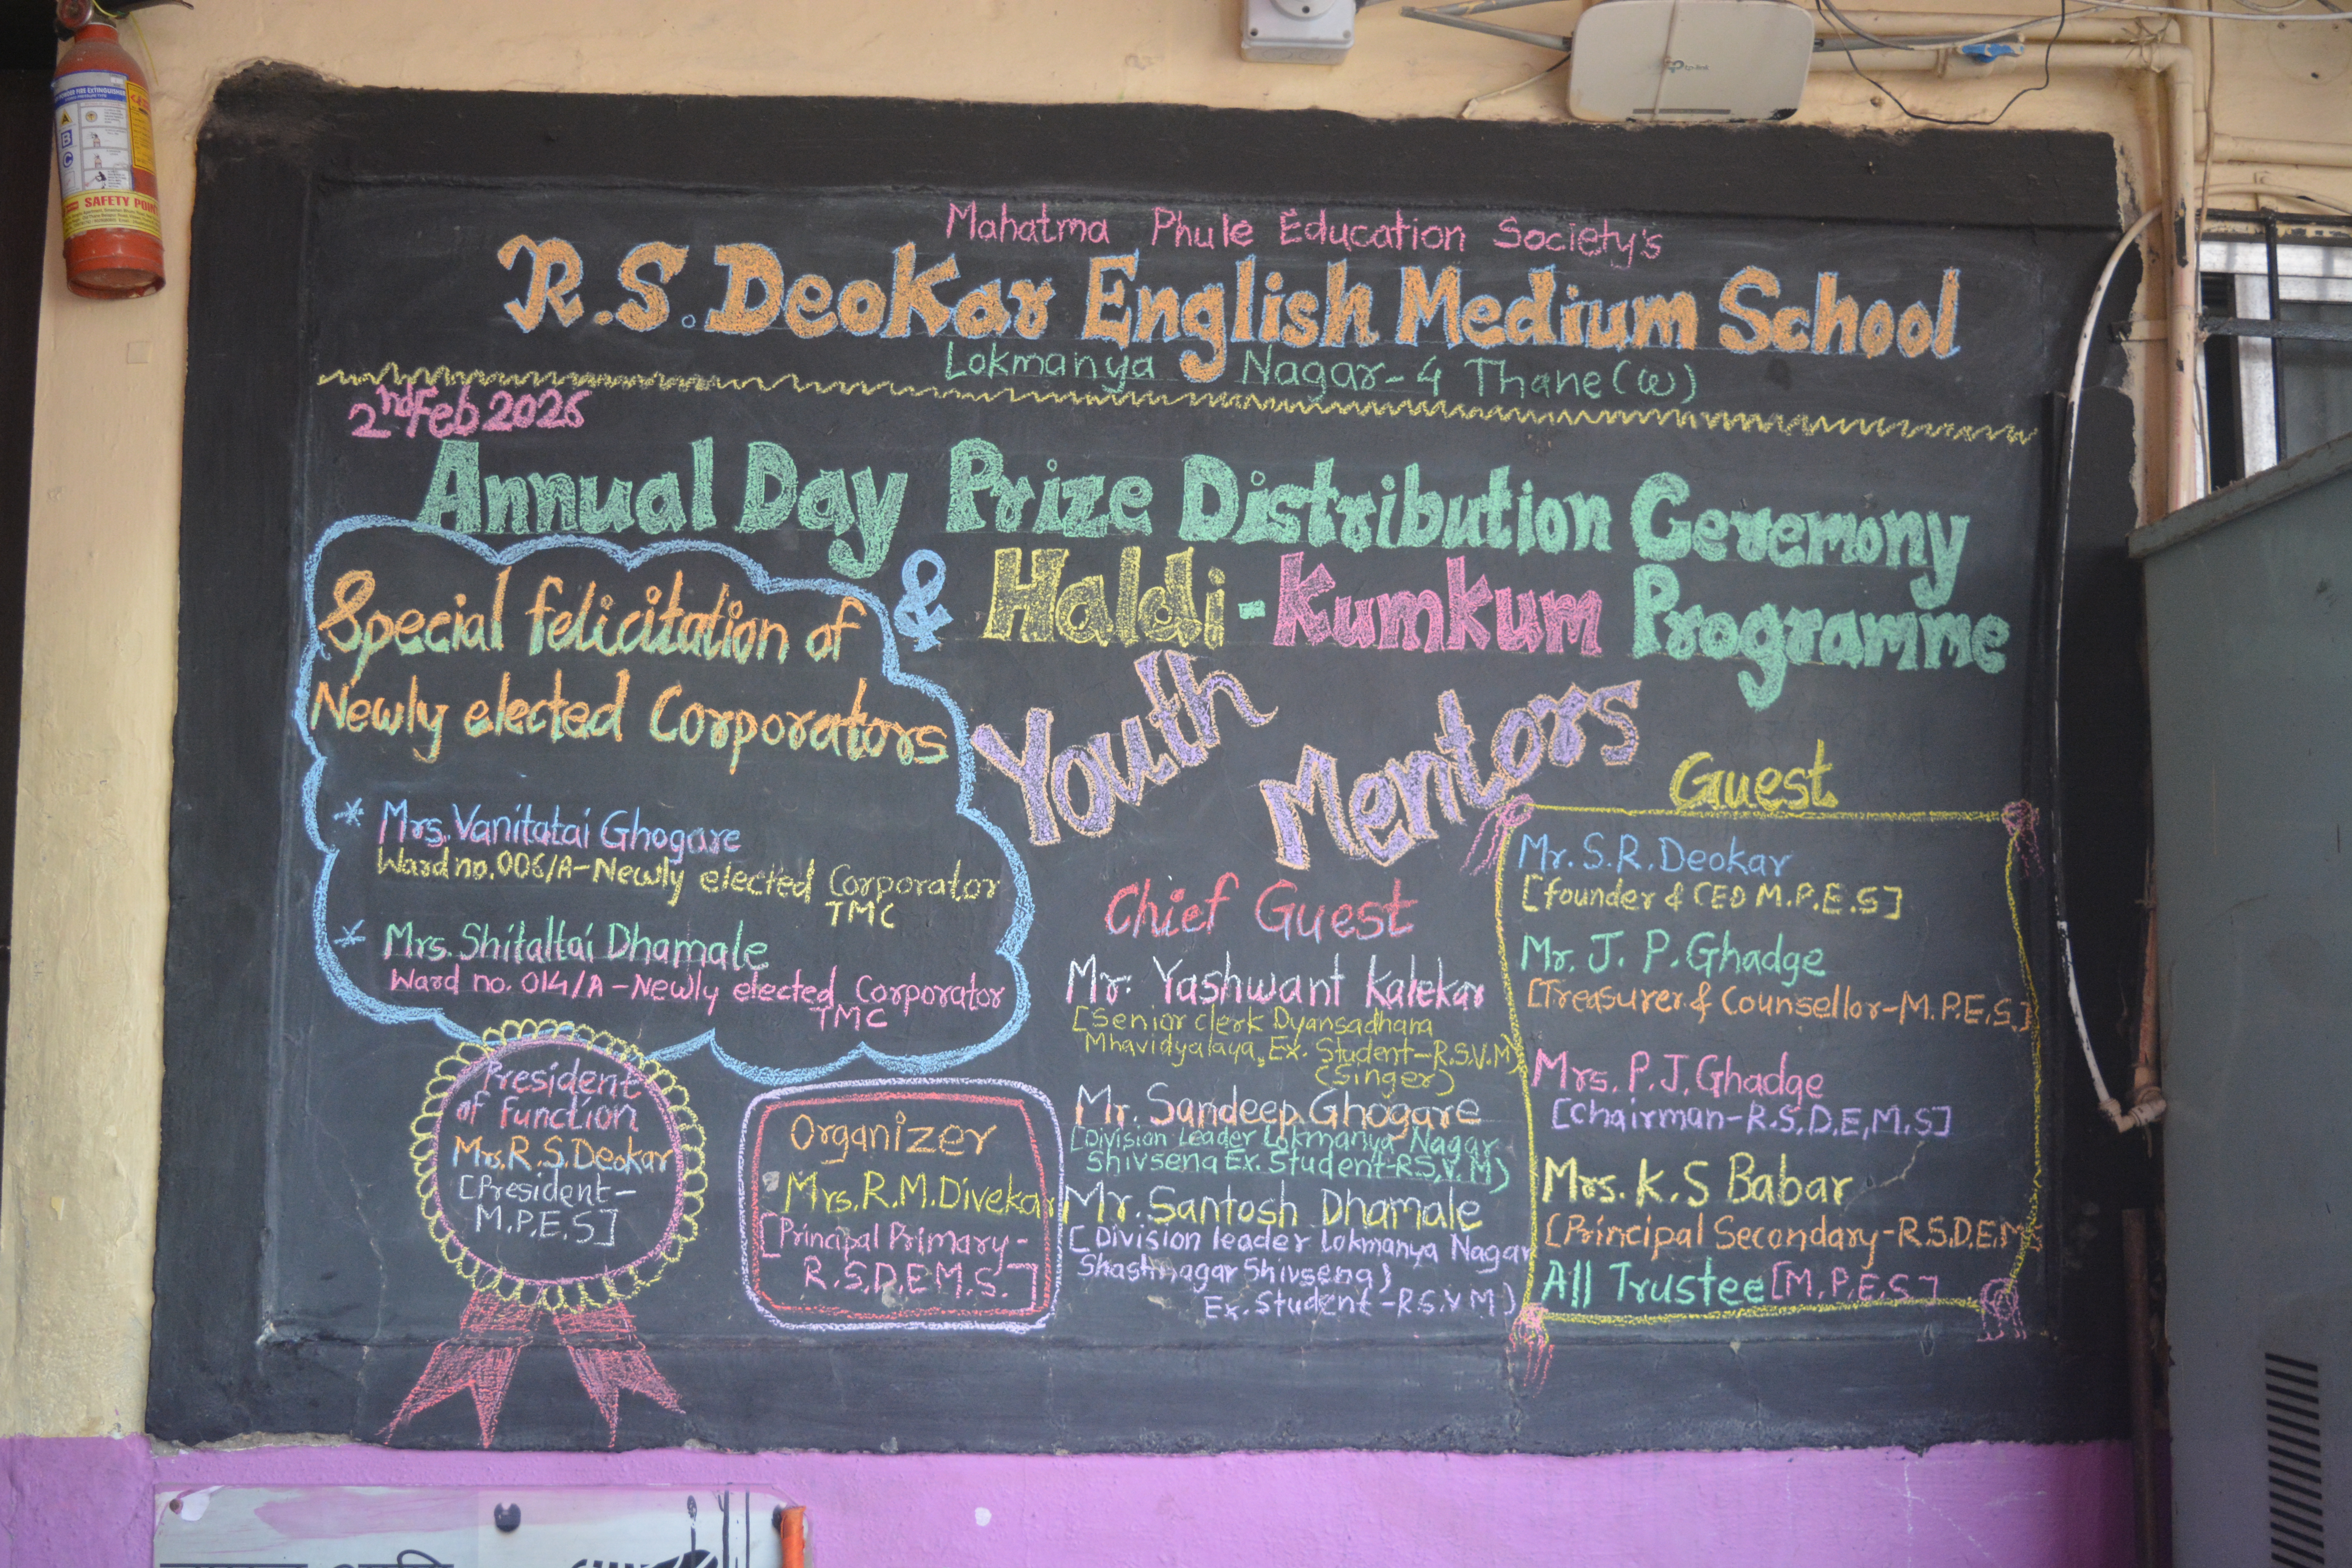 Mahatma Phule Education Society's
R.S.Deokar English Medium School
Lokmanya Nagar-4 Thane(W)
2nd Feb 2026
Annual Day Prize Distribution Ceremony
& Haldi-Kumkum Programme
Special felicitation of
Newly elected Corporators
* Mrs. Vanitatai Ghogare
Ward no. 006/A-Newly elected Corporator
TMC
* Mrs. Shitaltai Dhamale
Ward no. 014/A-Newly elected Corporator
TMC
President
of Function
Mrs. R.S.Deokar
[President-
M.P.E.S]
Organizer
Mrs.R.M.Divekar
[Principal Primary-
R.S.D.E.M.S.]
Youth
Mentors
Chief Guest
Mr. Yashwant Kalekar
[Senior clerk Dyansadhana
Mhavidyalaya, Ex. Student-R.S.V.M)
(Singer)
Mr. Sandeep Ghogare
[Division Leader Lokmanya Nagar
Shivsena Ex. Student-R.S.V.M)
Mr. Santosh Dhamale
[Division leader Lokmanya Nagar
Shastrinagar Shivsena)
Ex. Student-R.S.V.M)
Guest
Mr. S.R. Deokar
[founder & CEO M.P.E.S]
Mr. J. P. Ghadge
[Treasurer & Counsellor-M.P.E.S.]
Mrs. P.J. Ghadge
[Chairman-R.S.D.E.M.S]
Mrs. K.S Babar
[Principal Secondary-R.S.D.E.M.
All Trustee [M.P.E.S]
tp-link
A
B
C
SAFETY POINT